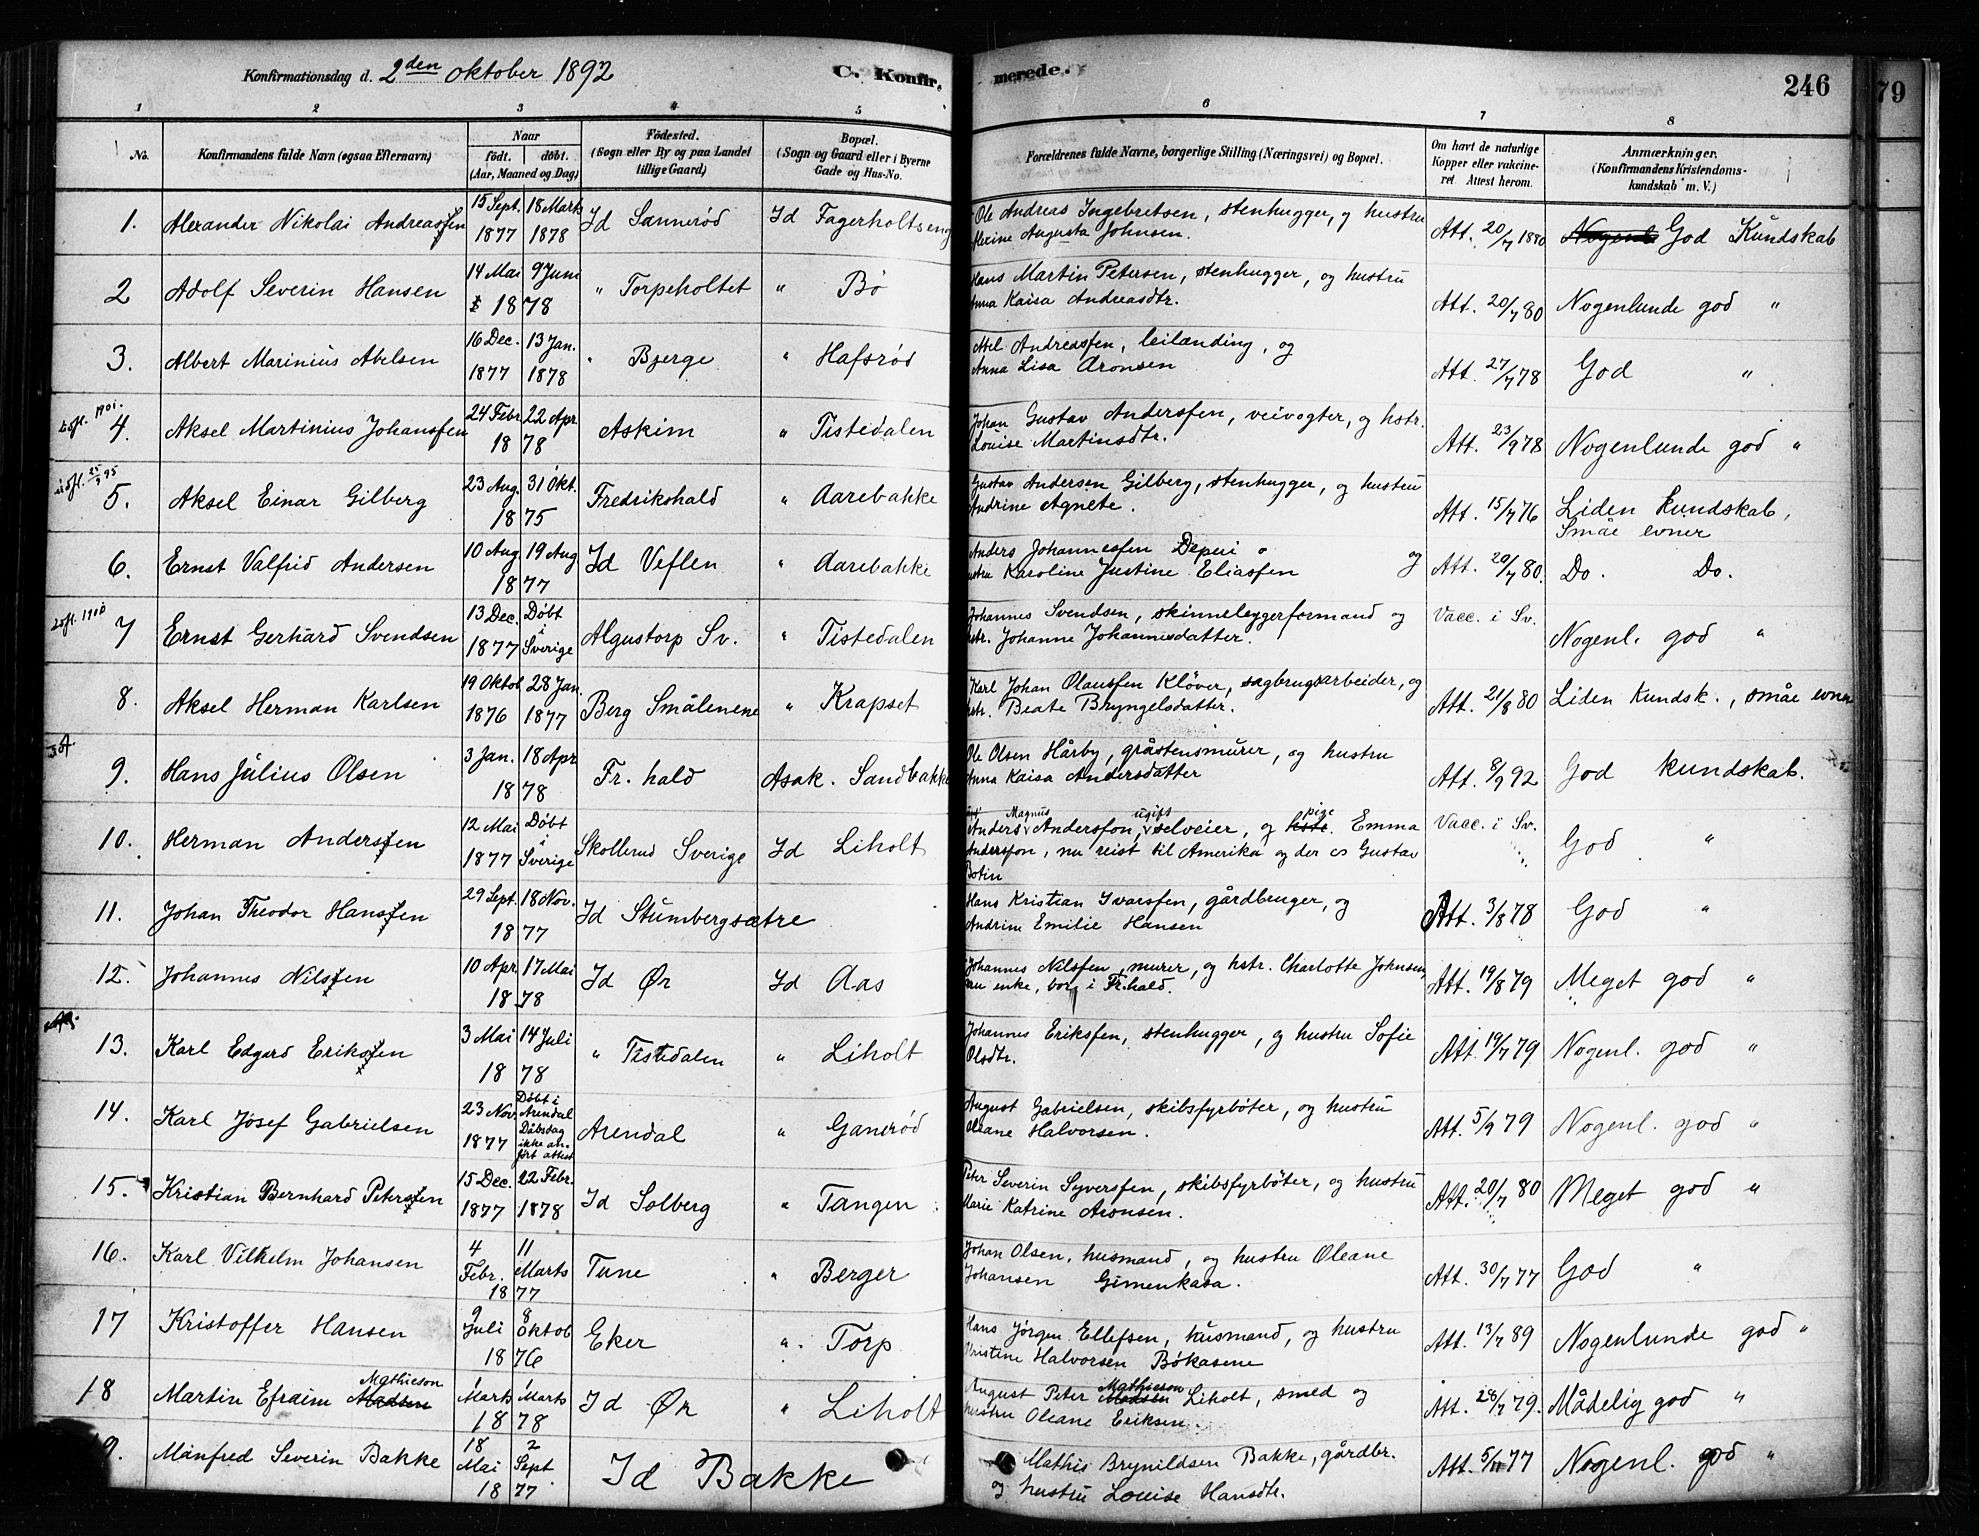 Konfirmationsdag d. 2den Oktober 1892 C. Konfirmerede. 246 79
1 2 3 4 5 6 7 8
No. Konfirmandens fulde Navn (ogsaa Efternavn) Naar født. døbt. (Aar, Maaned og Dag) Fødested. (Sogn eller By og paa Landet tillige Gaard) Bopæl. (Sogn og Gaard eller i Byerne Gade og Hus-No. Forældrenes fulde Navne, borgerlige Stilling (Næringsvei) og Bopæl. Om havt de naturlige Kopper eller vakcineret Attest herom. Anmærkninger. (Konfirmandens Kristendomskundskab m. V.)
1. Alexander Nikolai Andreassen 15 Sept. 1877 18 Marts 1878 Id Sannerød Id Fagerholtseng Ole Andreas Ingebretsen, stenhugger, og hustru
Alexine Augusta Johnsen. Att. 20/7 1880 God Kundskab
2 Adolf Severin Hansen 14 Mai 9 Juni 1878 " Torpeholtet " Bø Hans Martin Petersen, stenhugger, og hustru
Anna Kaisa Andreasdtr. Att. 20/7 80 Nogenlunde god "
3. Albert Marinius Abelsen 16 Dec. 1877 13 Jan. 1878 " Bjerge " Hafsrød Abel Andreassen, leilænding, og
Anna Lisa Aronsen Att. 27/7 78 God "
1901. 4. Aksel Martinius Johanssen 24 Febr 22 Apr 1878 Askim " Tistedalen Johan Gustav Anderssen, veivogter, og hstr.
Louise Martinsdtr. Att. 23/9 78 Nogenlunde god "
25/9 95 5. Aksel Einar Gilberg 23 Aug. 31 Okt. 1875 Fredrikshald " Aarebakke Gustav Andersen Gilberg, stenhugger, og hustru
Andrine Agnete. Att. 15/7 76 Liden kundskab,
Småe evner
6. Ernst Valfrid Andersen 10 Aug 19 Aug 1877 Id Veflen " Aarebakke Anders Johannessen og
hustru Karoline Justine Eliassen Att. 20/7 80. Do. Do.
7 Ernst Gerhard Svendsen 13 Dec. 1877 Døbt i Sverige Algustorp Sv. " Tistedalen Johannes Svendsen, skinneleggerformand og
hstr. Johanne Johannesdatter. Vacc. i Sv. Nogenl. god "
8. Aksel Herman Karlsen 19 Oktob 1876 28 Jan. 1877 Berg Smålenene " Krapset Karl Johan Olaussen Kløver, sagbrugsarbeider, og
hstr. Beate Bryngelsdatter. Att. 21/8 80 Liden Kundsk., småe evner
9. Hans Julius Olsen 3 Jan. 18 Apr 1878 Fr.hald Asak. Sandbakke Ole Olsen Hårby, gråstensmurer, og hustru
Anna Kaisa Andersdatter Att. 8/9 92 God kundskab.
10. Herman Anderssen 12 Mai 1877 Døbt i Sverige Skollerud Sverige Id Liholt Anders Magnus Andersson, ugift selveier, og pige hstr. Emma
Andersson, nu reist til Amerika og der es Gustav
Botin Vacc. i Sv. God "
11. Johan Theodor Hanssen 29 Sept. 18 Nov. 1877 Id Stumbergsætre Hans Kristian Ivarssen, gårdbruger, og
Andrine Emilie Hansen Att. 3/8 78 God "
12. Johannes Nilssen 10 Apr 17 Mai 1878 Id Ør Id Aas Johannes Nilssen, murer, og hstr. Charlotte Johnsen,
nu enke, bor i Fr.hald. Att. 19/8 79 Meget god "
13. Karl Edgard Erikssen 3 Mai 14 Juli 1878 " Tistedalen " Liholt Johannes Erikssen, stenhugger, og hustru Sofie
Olsdtr. Att. 19/7 79 Nogenl. god "
14. Karl Josef Gabrielsen 23 Nov. 1877 Døbt i Arendal Dåbsdag ikke anført attest Arendal " Ganerød August Gabrielsen, skibsfyrbøter, og hustru
Oleane Halvorsen. Att. 5/9 79 Nogenl. god "
15. Kristian Bernhard Peterssen 15 Dec. 1877 22 Febr. 1878 Id Solberg " Tangen Peter Severin Syverssen, skibsfyrbøter, og hustru
Marie Katrine Aronsen. Att. 20/7 80 Meget god "
16. Karl Vilhelm Johansen 4 Febr. 11 Marts 1877 Tune " Berger Johan Olsen, husmand, og hustru Oleane
Johansen Gimenkasa. Att. 30/7 77 God "
17 Kristoffer Hansen 9 Juli 8 Oktob 1876 Eker " Torp Hans Jørgen Ellefsen, husmand, og hustru
Kristine Halvorsen Bøkasene Att. 13/7 89 Nogenlunde god "
18 Martin Efraim Madsen Mathieson 1 Marts 1 Marts 1878 Id Ør " Liholt August Peter Madsen Mathieson Liholt, smed og
hustru Oleane Eriksen. Att. 28/7 79. Mådelig god "
19. Manfred Severin Bakke 18 Mai 2 Sept 1877 Id Bakke Mathis Brynildsen Bakke, gårdbr.
og hustru Louise Hansdtr. Att. 5/11 77 Nogenl. god "